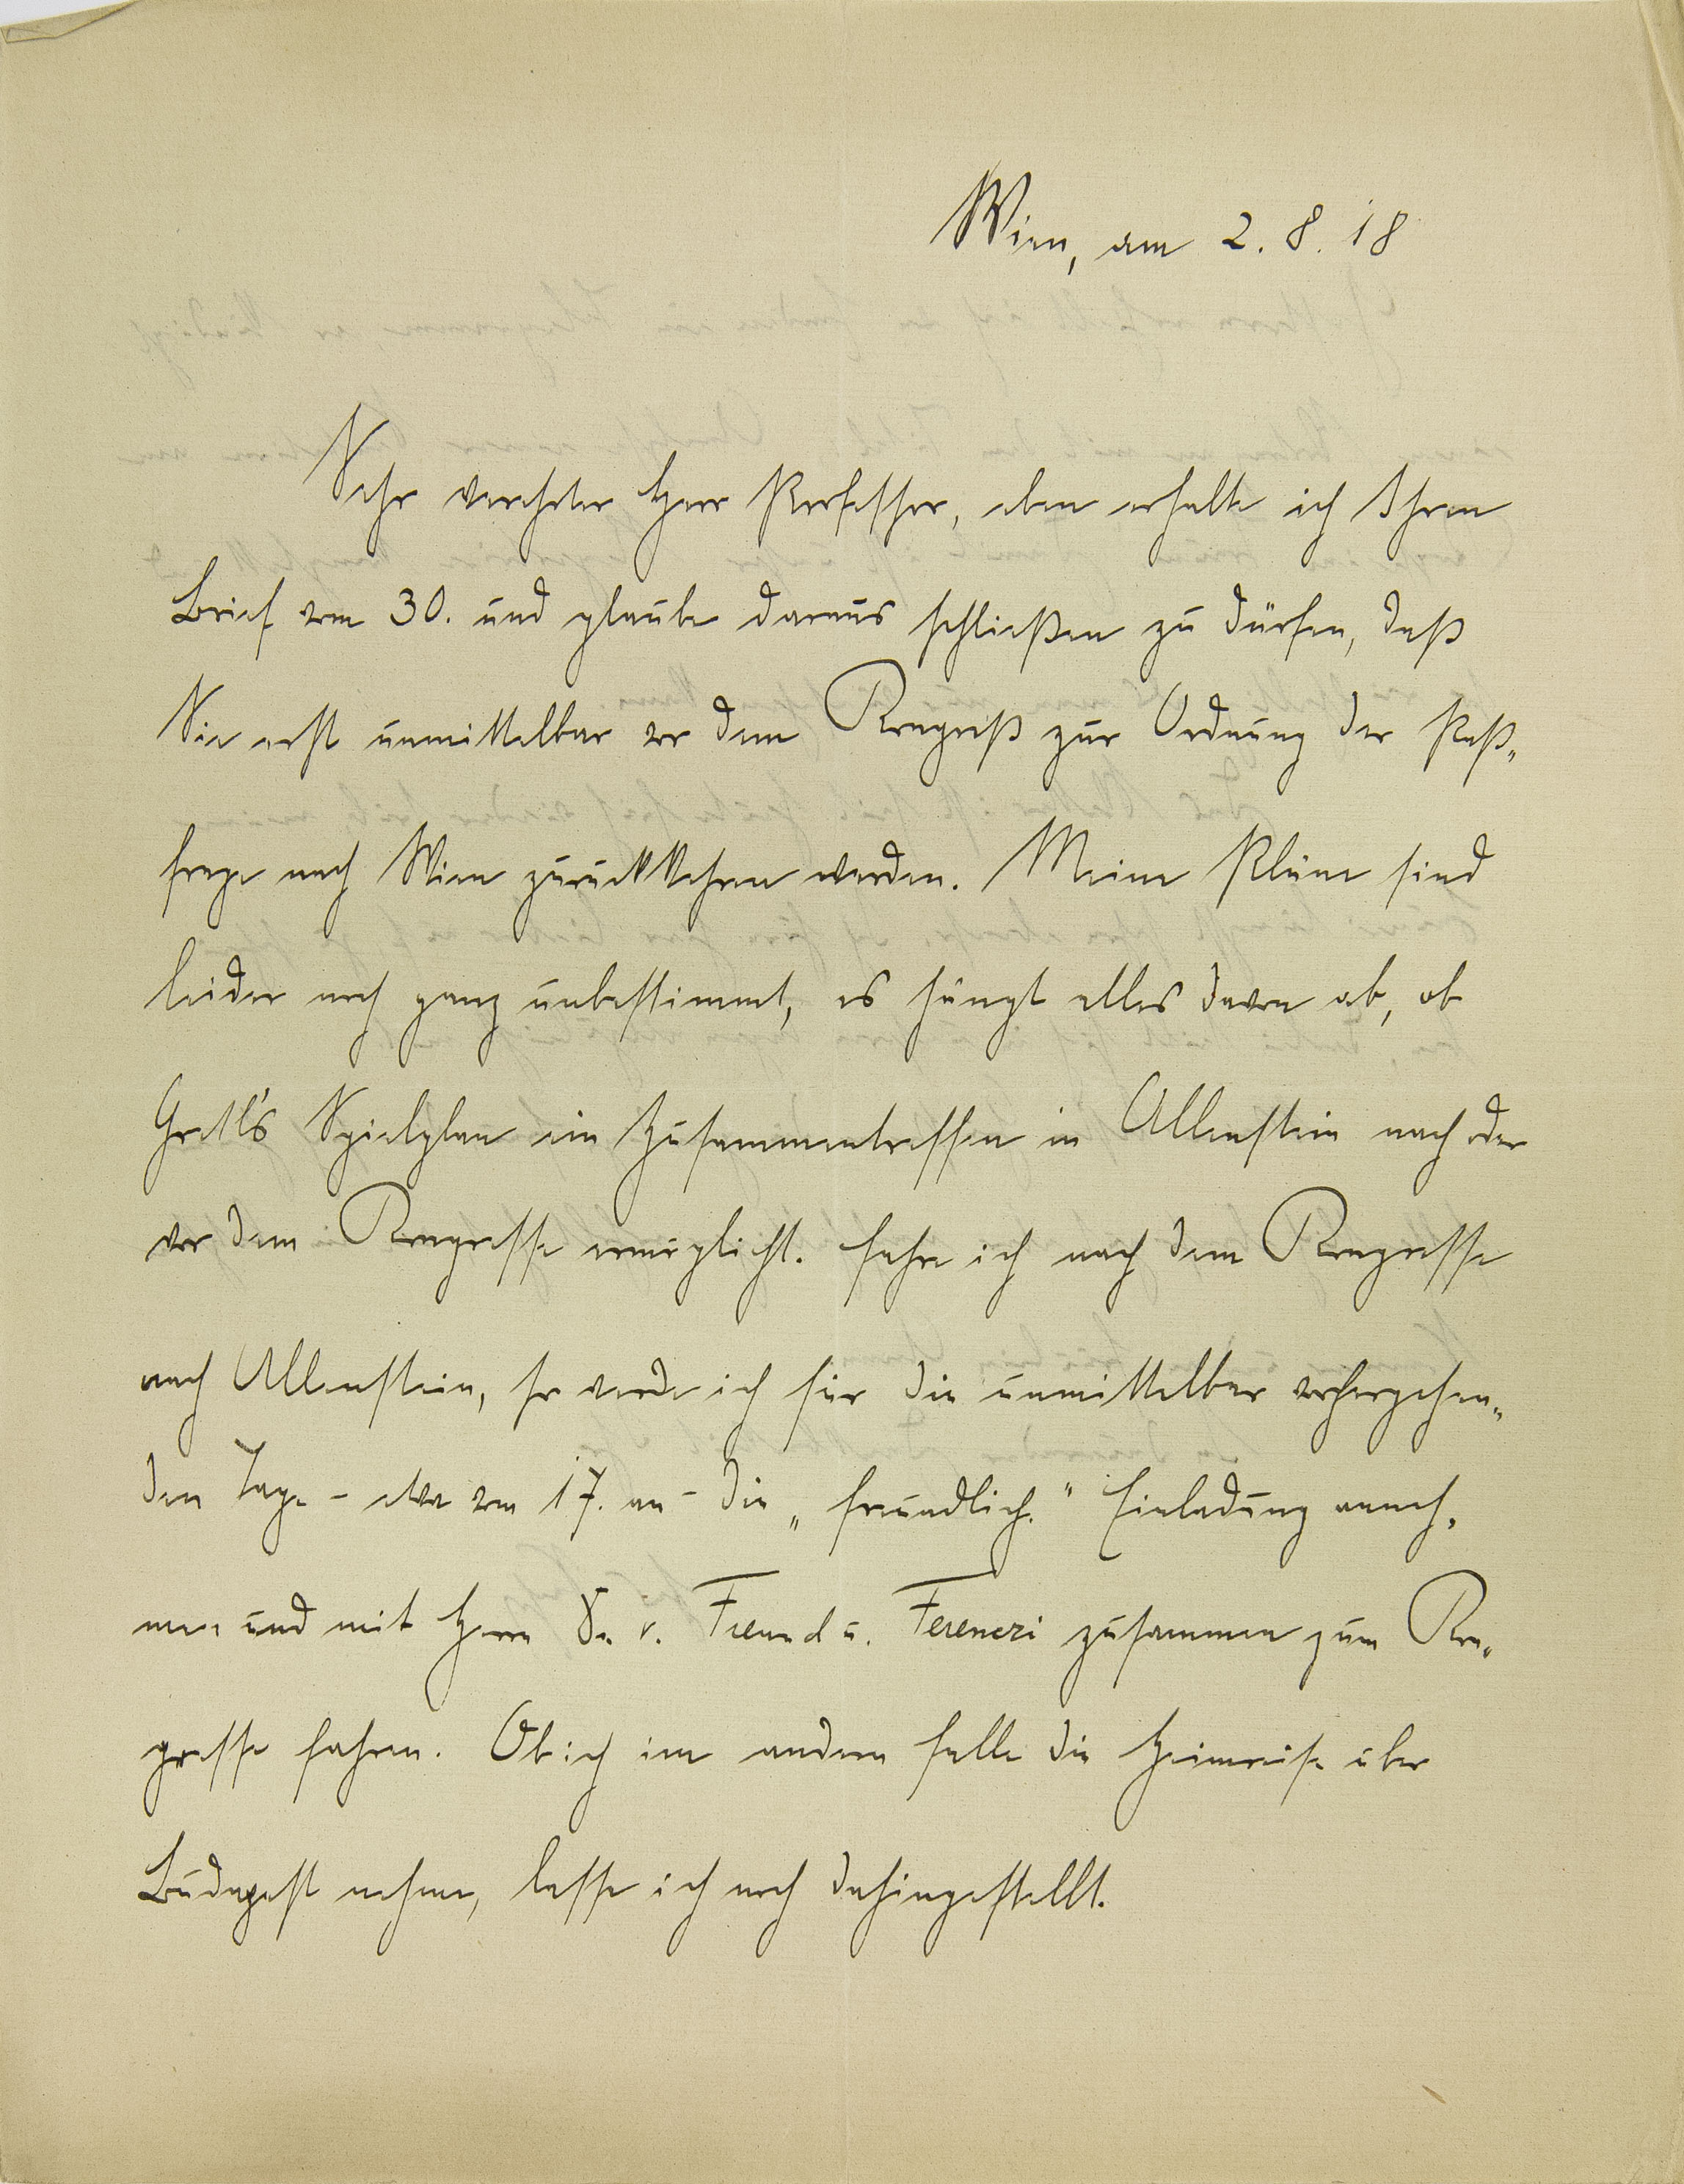 Wien, am 2. 8. 18
Sehr verehrter Herr Professor, eben erhalte ich Ihren
Brief vom 30. und glaube daraus schließen zu dürfen, daß
Sie erst unmittelbar vor dem Kongreß zur Ordnung der Paß-
frage nach Wien zurückkehren werden. Meine Pläne sind
leider noch ganz unbestimmt, es hängt alles davon ab, ob
Gretl's Spielplan ein Zusammentreffen in Allenstein nach oder
vor dem Kongresse ermöglicht. Fahre ich nach dem Kongresse
nach Allenstein, so werde ich für die unmittelbar vorhergehen-
den Tage – etwa vom 17. an – die „freundlich." Einladung anneh-
men und mit Herrn Dr. v. Freund u. Ferenczi zusammen zum Kon-
gresse fahren. Ob ich im andern Falle die Heimreise über
Budapest nehme, lasse ich noch dahingestellt.